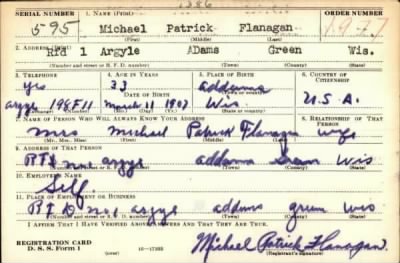 1386
SERIAL NUMBER 1. NAME (Print) ORDER NUMBER
595 Michael Patrick Flanagan 1977
(First) (Middle) (Last)
2. ADDRESS (Print)
Rfd 1 Argyle ADams Green Wis.
(Number and street or R. F. D. number) (Town) (County) (State)
3. TELEPHONE 4. AGE IN YEARS 5. PLACE OF BIRTH 6. COUNTRY OF CITIZENSHIP
yes 33 addams
DATE OF BIRTH (Town or county)
argyle 198F11 March 11 1907 Wis. U.S.A.
(Exchange) (Number) (Mo.) (Day) (Yr.) (State or country)
7. NAME OF PERSON WHO WILL ALWAYS KNOW YOUR ADDRESS 8. RELATIONSHIP OF THAT PERSON
Mrs Michael Patrick Flanagan wife
(Mr., Mrs., Miss) (First) (Middle) (Last)
9. ADDRESS OF THAT PERSON
argyle addams Green Wis
(Number and street or R. F. D. number) (Town) (County) (State)
10. EMPLOYER'S NAME
Self.
11. PLACE OF EMPLOYMENT OR BUSINESS
R F D no 1 argyle addams green wis
(Number and street or R. F. D. number) (Town) (County) (State)
I AFFIRM THAT I HAVE VERIFIED ABOVE ANSWERS AND THAT THEY ARE TRUE.
REGISTRATION CARD
D. S. S. Form 1 (over) 16-17105 Michael Patrick Flanagan.
(Registrant's signature)